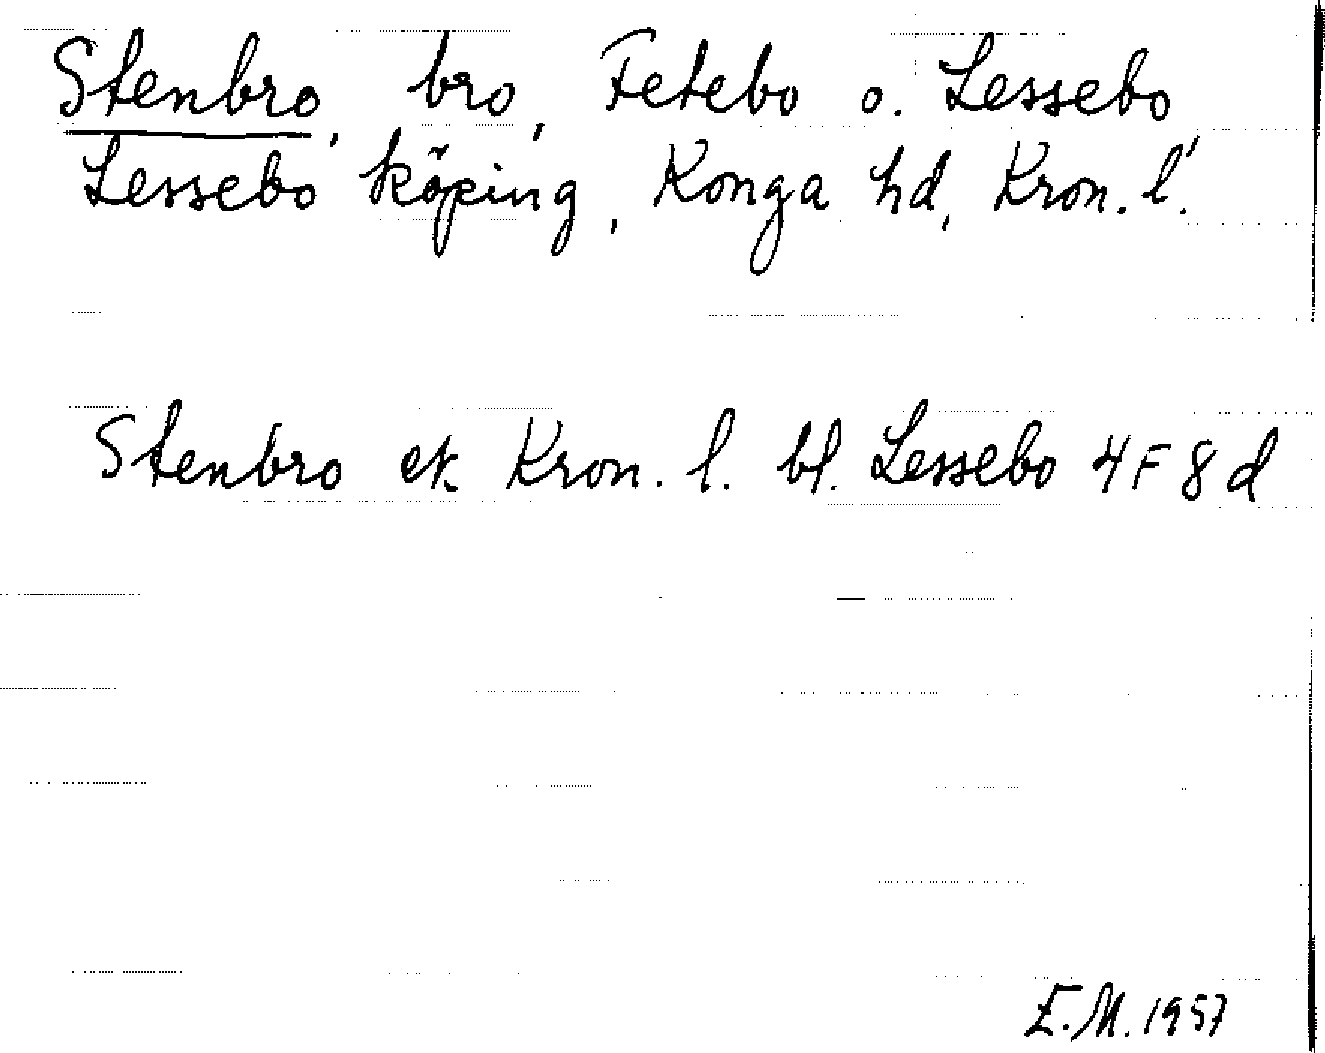 Stenbro, bro, Fetebo o. Lessebo,
Lessebo köping, Konga hd, Kron. l.
Stenbro ek. Kron. l. bl. Lessebo 4 F 8 d
E.M. 1957